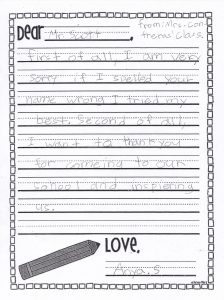 from: Mrs. Con-
Dear Mr. Scott, treras' Class.
first of all, I am very
sorry if I spelled your
name wrong I tried my
best. Second of all,
I want to thank you
for comeing to our
school and inspiering
us.
Love,
Anya.S